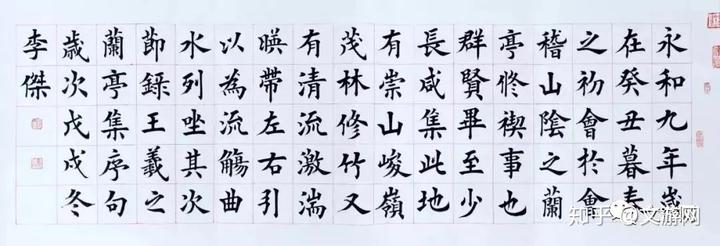 永和九年歲
在癸丑暮春
之初會於會
稽山陰之蘭
亭修禊事也
群賢畢至少
長咸集此地
有崇山峻嶺
茂林修竹又
有清流激湍
暎帶左右引
以為流觴曲
水列坐其次
節錄王羲之
蘭亭集序句
歲次戊戌冬
李傑
知乎